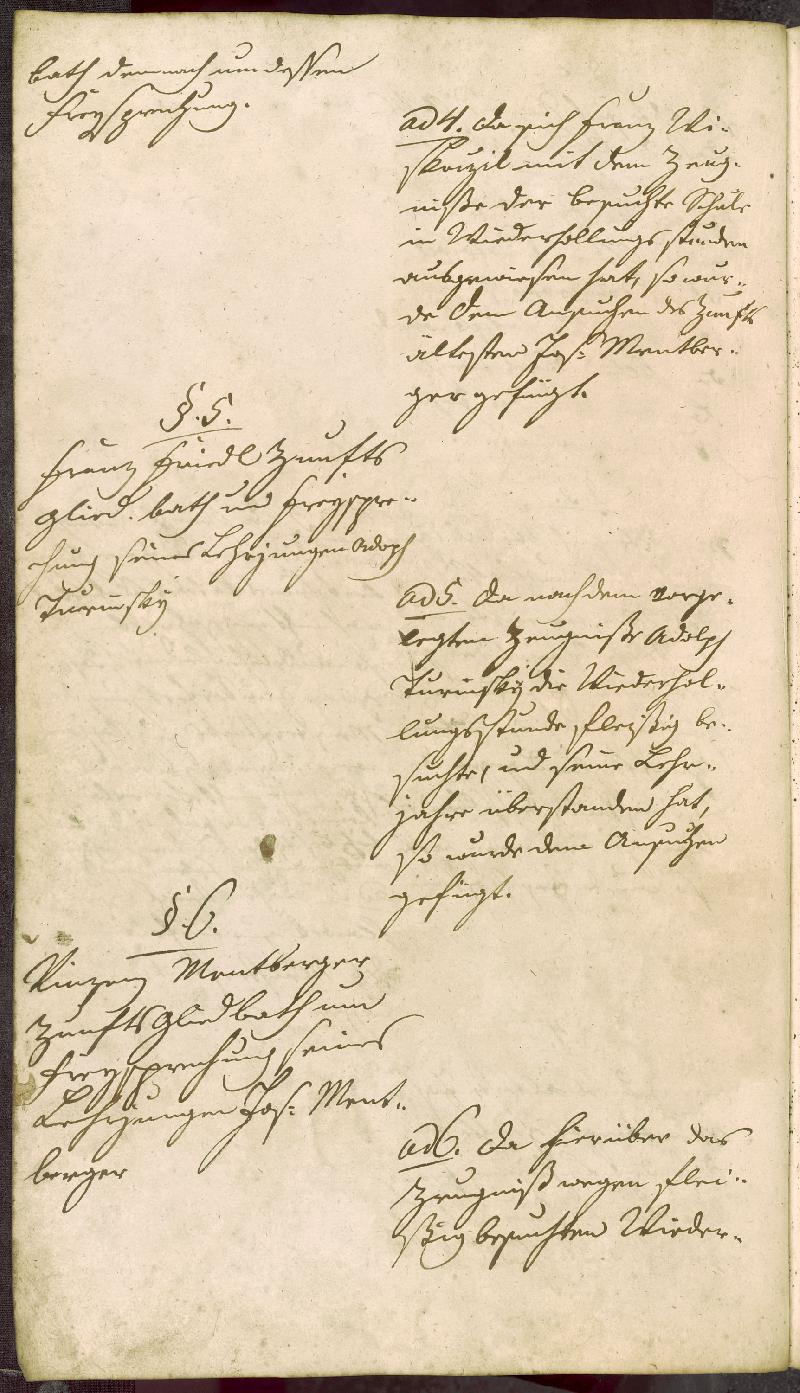 bath demnach um dessen
Freysprechung.
ad 4. Da sich Franz Wi-
skozil mit dem Zeug-
niße der besuchte Schule
in Wiederhollungs stunden
ausgewiesen hat, so wur-
de dem Ansuchen des Zunfts
ältesten Jos: Mentber-
ger gefügt.
§. 5.
Franz Friedl Zunfts
glied. bath um Freyspre-
chung seines Lehrjungen Adolph
Turinsky
ad 5. Da nach dem vorge-
legten Zeugniße Adolph
Turinsky die Wiederhol-
lungsstunde fleißig be-
suchte, und seine Lehr-
jahre überstanden hat,
so wurde dem Ansuchen
gefügt.
§. 6.
Vinzenz Mentberger
Zunfts Glied bath um
Freysprechung seines
Lehrjungen Jos: Ment-
berger
ad 6. Da hierüber das
Zeugniß wegen flei-
ßig besuchten Wieder-